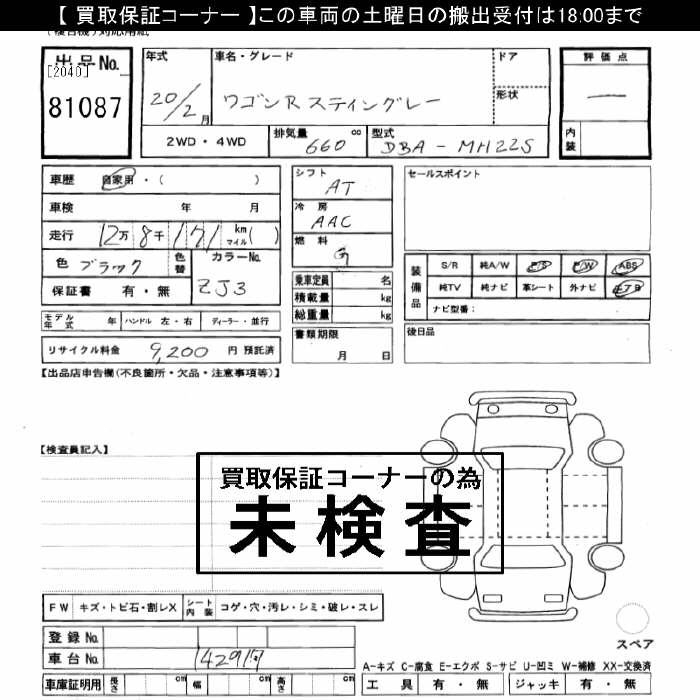 【 買取保証コーナー 】この車両の土曜日の搬出受付は18:00まで
(複合機)対応用紙
出品No.
[2040]
81087
年式
20/2月
車名・グレード
ワゴンR スティングレー
ドア
形状
2WD・4WD
排気量
660 cc
型式
DBA - MH22S
評価点
—
内装
車歴 自家用・( )
車検 年 月
走行 12万8千171 km マイル( )
色 ブラック
色替
カラーNo.
ZJ3
保証書 有・無
モデル年式 年
ハンドル 左・右
ディーラー・並行
リサイクル料金 9,200 円 預託済
シフト
AT
冷房
AAC
燃料
G
乗車定員 名
積載量 kg
総重量 kg
書類期限
月 日
セールスポイント
装備品
S/R 純A/W P/S P/W ABS
純TV 純ナビ 革シート 外ナビ エアB
ナビ型番:
後日品
【出品店申告欄(不良箇所・欠品・注意事項等)】
【検査員記入】
買取保証コーナーの為
未検査
FW キズ・トビ石・割レX
シート内装 コゲ・穴・汚レ・シミ・破レ・スレ
登録No.
車台No.
車庫証明用 長さ cm 幅 cm 高さ cm
スペア
A-キズ C-腐食 E-エクボ S-サビ U-凹ミ W-補修 XX-交換済
工具 有・無 ジャッキ 有・無